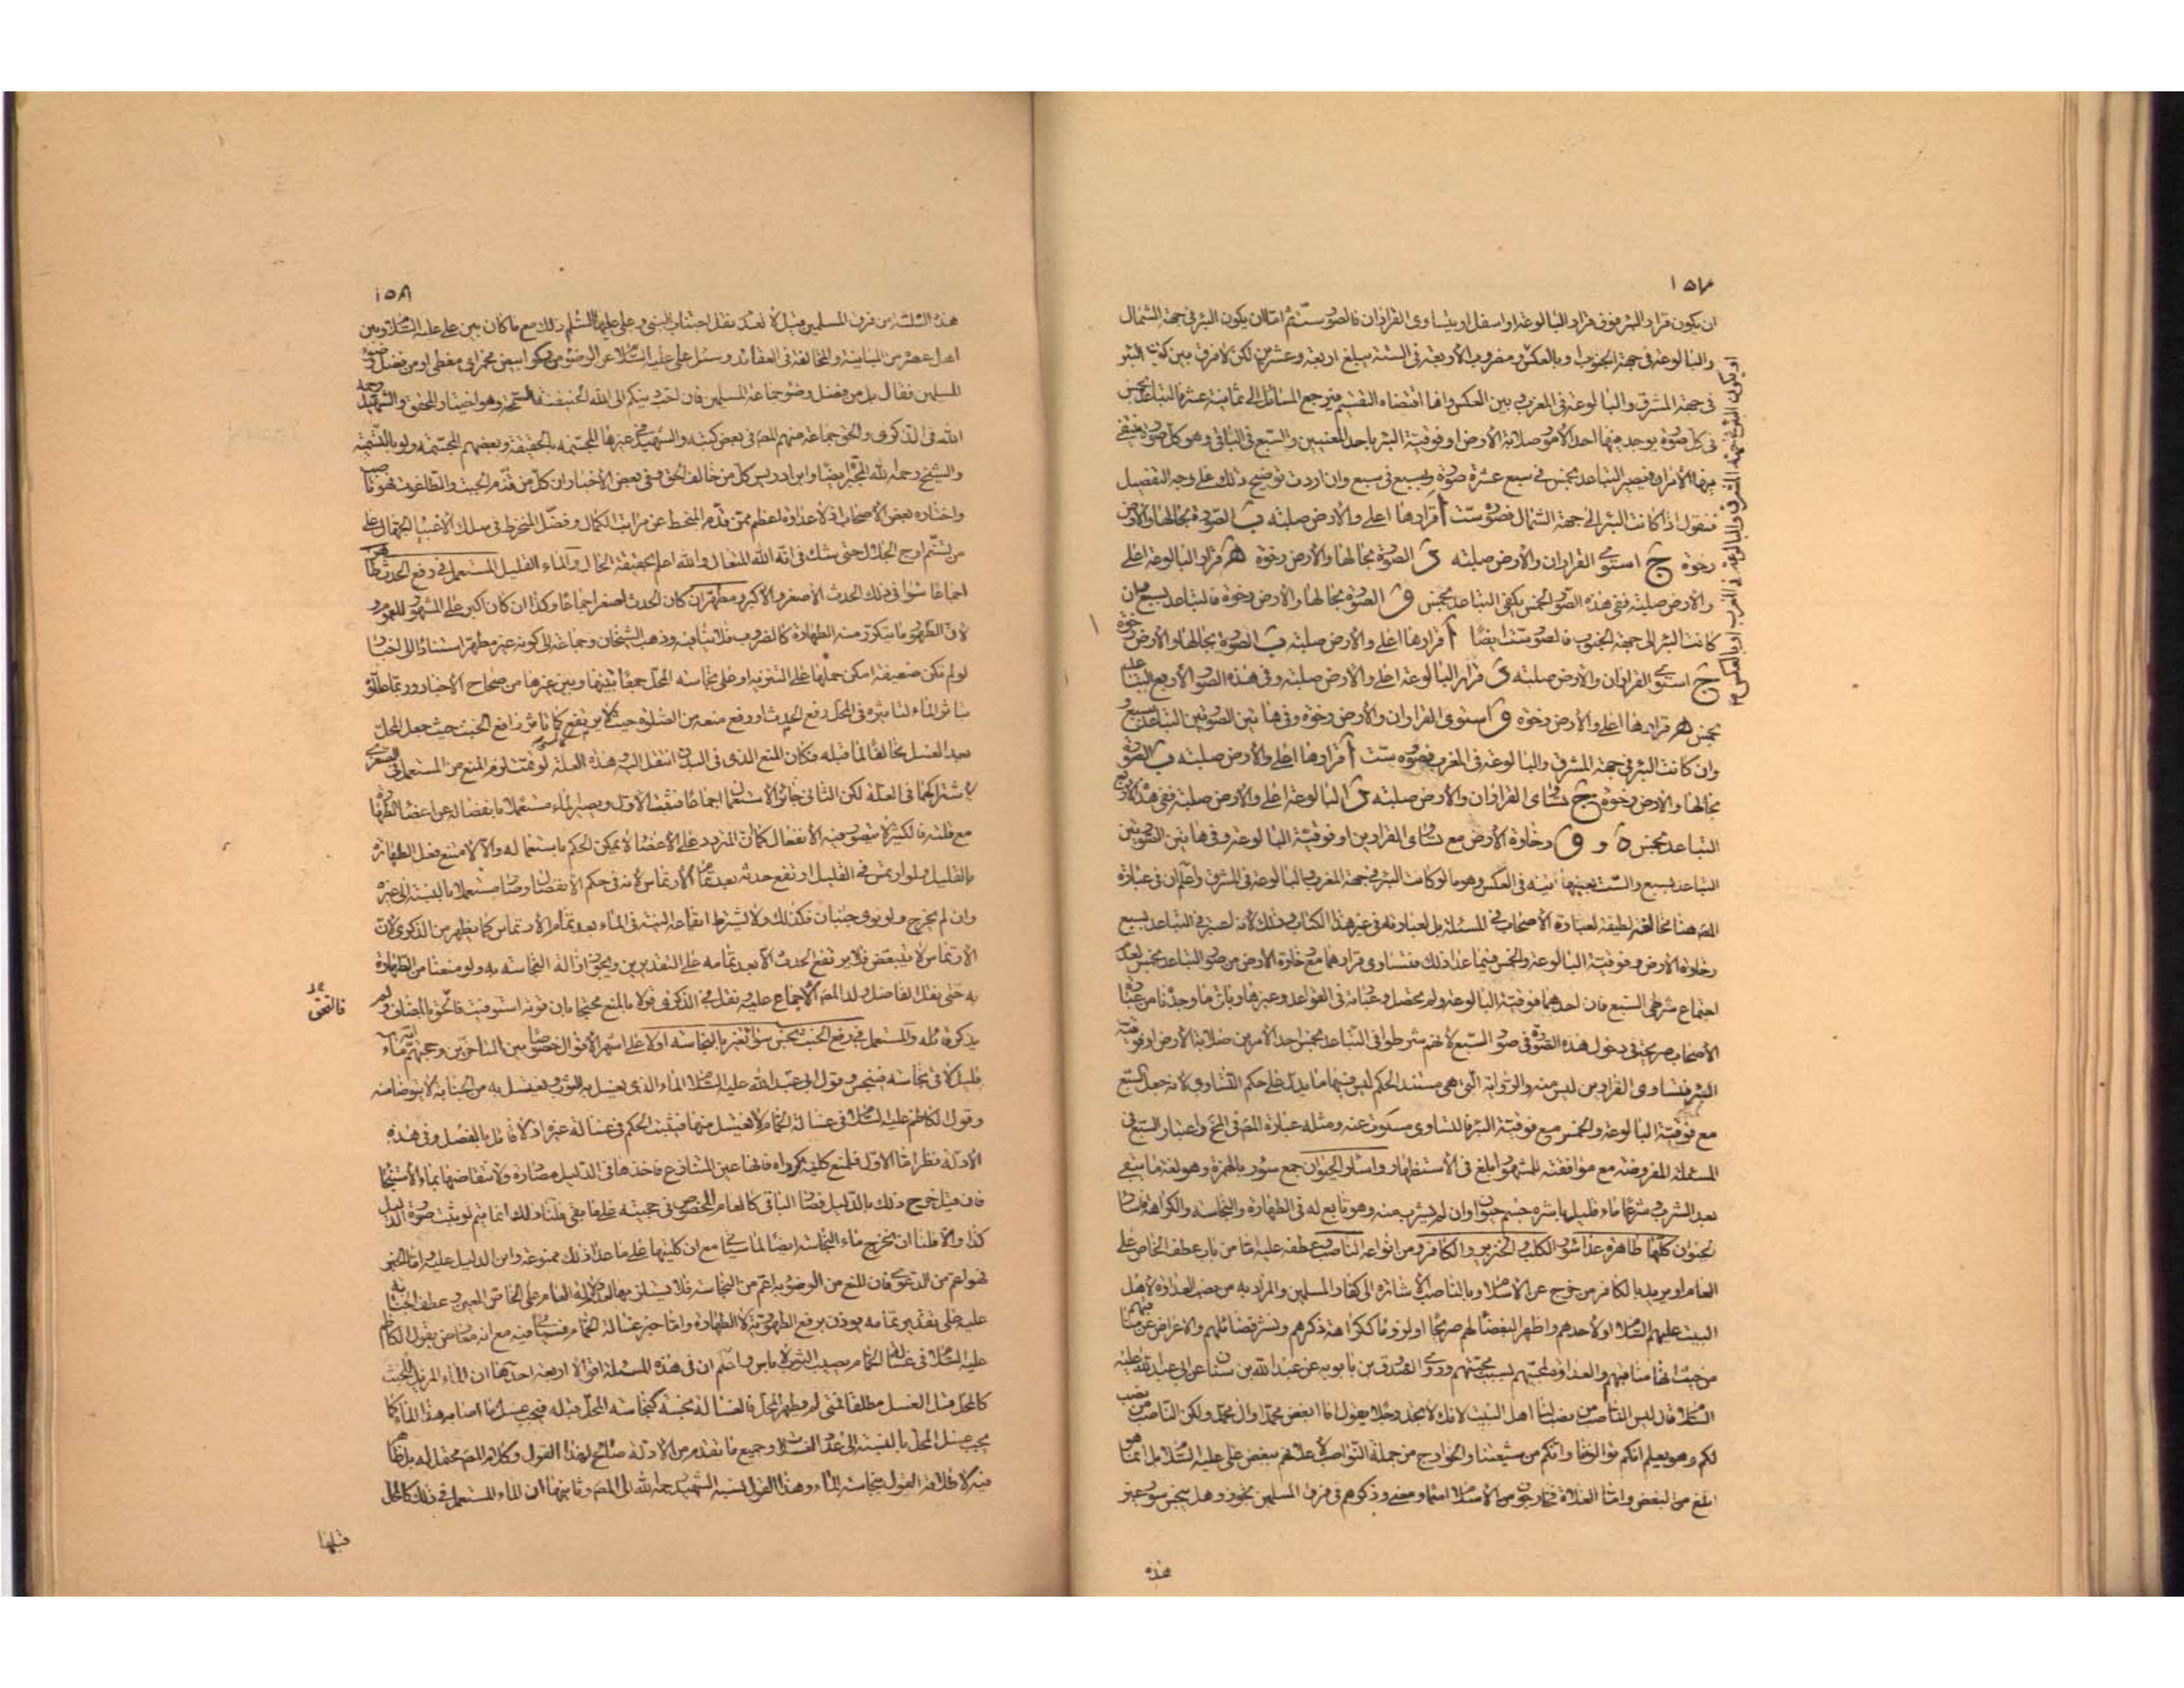 ١٥٧
ان يكون قرار البئر فوق قرار البالوعة او اسفل او يتساوى القراران فالصور ست ثم اما ان يكون البئر في جهة الشمال
والبالوعة في جهة الجنوب او بالعكس ومضروب الاربعة في الستة يبلغ اربعة وعشرين لكن لا فرق بين كون البئر
في جهة المشرق والبالوعة في المغرب وبين العكس وانما اقتضاه التقسيم فيرجع المسائل الى ثمانية عشر فالتباعد بخمس
في كل صورة يوجد فيها احد الامور صلابة الارض او فوقية البئر باحد المعنيين والسبع في الباقي وهو كل صورة ينتفى
فيها الامران فيصير التباعد بخمس في سبع عشرة صورة وبسبع في سبع وان اردت توضيح ذلك على وجه التفصيل
فنقول اذا كانت البئر الى جهة الشمال فصوره ست أ قرارها اعلى والارض صلبة ب الصورة بحالها والارض
رخوة ج استوى القراران والارض صلبة د الصورة بحالها والارض رخوة ه قرار البالوعة اعلى
والارض صلبة ففي هذه الصور الخمس يكفى التباعد بخمس و الصورة بحالها والارض رخوة فالتباعد بسبع وان
كانت البئر الى جهة الجنوب فالصور ست ايضا أ قرارها اعلى والارض صلبة ب الصورة بحالها والارض رخوة
ج استوى القراران والارض صلبة د قرار البالوعة اعلى والارض صلبة وفي هذه الصور الاربع التباعد
بخمس ه قرارها اعلى والارض رخوة و استوى القراران والارض رخوة وفي هاتين الصورتين التباعد بسبع
وان كانت البئر في جهة المشرق والبالوعة في المغرب فصوره ست أ قرارها اعلى والارض صلبة ب الصورة
بحالها والارض رخوة ج تساوى القراران والارض صلبة د البالوعة اعلى والارض صلبة ففي هذه الاربع
التباعد بخمس ه و و رخاوة الارض مع تساوى القرارين او فوقية البالوعة وفي هاتين الصورتين
التباعد بسبع والست بعينها آتية في العكس وهو ما لو كانت البئر في جهة المغرب والبالوعة في المشرق واعلم ان في عبارة
المص هنا مخالفة لطيفة لعبارة الاصحاب في المسئلة بل لعبارته في غير هذا الكتاب وذلك لانه اعتبر في التباعد بسبع
رخاوة الارض وفوقية البالوعة والخمس فيما عدا ذلك فتساوى قرارهما مع رخاوة الارض من صور التباعد بخمس لعدم
اجتماع شرطى السبع فان احدهما فوقية البالوعة ولم يحصل وعباراته في القواعد وغيرها وباقى ما وجدنا من عبارة
الاصحاب صريحة في دخول هذه الصورة في صور السبع لانهم شرطوا في التباعد بخمس احد الامرين صلابة الارض او فوقية
البئر فتساوى القرارين ليس منه والرواية التى هى مستند الحكم ليس فيها ما يدل على حكم التساوى لانه جعل السبع
مع فوقية البالوعة والخمس مع فوقية البئر فالتساوى مسكوت عنه ومثله عبارة المص في واعتبار السبع في
المسئلة المفروضة مع موافقته للمشهور ابلغ في الاستظهار واسئار الحيوان جمع سؤر بالهمزة وهو لغة ما يبقى
بعد الشرب وشرعا ماء قليل باشره جسم حيوان وان لم يشرب منه وهو تابع له في الطهارة والنجاسة والكراهة
الحيوان كلها طاهرة عدا سؤر الكلب والخنزير والكافر ومن انواعه الناصب وعطفه عليه اما من باب عطف الخاص على
العام او يريد بالكافر من خرج عن الاسلام وبالناصب الاشارة الى كفار المسلمين والمراد به من نصب العداوة لاهل
البيت عليهم السلام او لاحدهم واظهر البغضاء لهم صريحا او لزوما ككراهة ذكرهم ونشر فضائلهم والاعراض عن
من حيث انها مناقبهم والعداوة لمحبيهم بسبب محبتهم وروى الصدوق بن بابويه عن عبد الله بن سنان عن ابى عبد الله عليه
السلام قال ليس الناصب من نصب لنا اهل البيت لانك لا تجد رجلا يقول انا ابغض محمدا وال محمد ولكن الناصب من نصب
لكم وهو يعلم انكم توالونا وانكم من شيعتنا والخوارج من جملة النواصب لاعلانهم ببغض على عليه السلام بل انما هو
ابلغ من البغض واما الغلاة فخارجون من الاسلام اسما ومعنى وذكرهم في فرق المسلمين تجوز وهل ينجس سؤر غير
هذه
او يكون البئر في جهة المشرق والبالوعة في المغرب او بالعكس
١٥٨
هذه الثلثة من فرق المسلمين قيل لا لعدم نقل اجتناب النبى وعلى عليهما السلم ذلك مع ما كان بين على عليه السلام وبين
اهل عصره من المباينة والمخالفة في العقائد وسئل على عليه السلام عن الوضوء من ركو ابيض مخمر اى مغطى او من فضل وضوء
المسلمين فقال بل من فضل وضوء جماعة المسلمين فان احب دينكم الى الله الحنيفية السمحة وهو اختيار المحقق والشهيد رحمه
الله في الذكرى والحق جماعة منهم المص في بعض كتبه والشهيد في غيرها المجسمة بالحقيقة وبعضهم المجسمة ولو بالتسمية
والشيخ رحمه الله المجبرة ايضا وابن ادريس كل من خالف الحق وفي بعض الاخبار ان كل من قدم الجبت والطاغوت فهو ناصب
واختاره بعض الاصحاب اذ لا عداوة اعظم ممن قدم المنحط عن مراتب الكمال وفضل المنخرط في سلك الاغبياء الجهال على
من تسنم اوج الجلال حتى شك في انه الله المتعال والله اعلم بحقيقة الحال والماء القليل المستعمل في رفع الحدث طاهر
اجماعا سواء في ذلك الحدث الاصغر والاكبر ومطهر ان كان الحدث اصغر اجماعا وكذا ان كان اكبر على المشهور
لان الطهور ما يتكرر منه الطهارة كالضروب فلا ينافيه وذهب الشيخان وجماعة الى كونه غير مطهر استنادا الى اخبار
لو لم تكن ضعيفة امكن حملها على التنزيه او على نجاسة المحل جمعا بينها وبين غيرها من صحاح الاخبار وربما علل
بتاثر الماء لتاثيره في المحل رفع الحدث او رفع منعه من الصلوة حيث لا يرتفع كما تاثر رافع الخبث حيث جعل المحل
بعد الغسل مخالفا لما قبله فكان المنع الذى في البدن انتقل اليه وهذه العلة لو تمت لزم المنع من المستعمل في الصغرى
لاشتراكهما في العلة لكن الثانى جائز الاستعمال اجماعا فينتفى الاول ويصير الماء مستعملا بانفصاله عن اعضاء الطهارة
مع قلته فالكثير لا يتصور فيه الانفعال كما ان المتردد على الاعضاء لا يمكن الحكم باستعماله والا لامتنع فعل الطهارة
بالقليل فلو ارتمس في القليل ارتفع حدثه بعد تمام الارتماس لانه في حكم الانفصال وصار مستعملا بالنسبة الى غيره
وان لم يخرج ولو نوى جنبان فكذلك ولا يشترط ايقاع النية في الماء بعد تمام الارتماس كما يظهر من الذكرى لان
الارتماس لا يتبعض فلا يرتفع الحدث الا بعد تمامه على التقديرين ويجوز ازالة النجاسة به ولو منعنا من الطهارة
به حتى نقل الفاضل ولد المص الاجماع عليه ونقل في الذكرى قولا بالمنع محتجا بان قوته استوفيت فالتحق بالمضاف ولم
يذكر قائله والمستعمل في رفع الخبث نجس سواء تغير بالنجاسة او لا على اشهر الاقوال خصوصا بين المتاخرين وحجتهم انه ماء
قليل لاقى نجاسة فينجس وقول ابى عبد الله عليه السلام الماء الذى يغسل به الثوب ويغتسل به من الجنابة لا يتوضا منه
وقول الكاظم عليه السلام في غسالة الحمام لا تغتسل منها فيثبت الحكم في غسالة غيره اذ لا قائل بالفصل وفي هذه
الادلة نظر اما الاول فلمنع كلية كبراه فانها عين المتنازع فاخذها في الدليل مصادرة ولانتقاضها بماء الاستنجاء
فان قيل خرج ذلك بالدليل فصار الباقى كالعام المخصوص في حجيته على ما بقى قلنا ذلك انما يتم لو ثبت صورة الدليل
كذا والا فلنا ان نخرج ماء النجاسة ايضا لما سياتى مع ان كليتها على ما عدا ذلك ممنوعة واين الدليل عليه واما الخبر
فهو اعم من الدعوى فان المنع من الوضوء به اعم من النجاسة فلا يستلزمها لعدم دلالة العام على الخاص المعين وعطف الجنابة
عليه على تقدير تمامه يؤذن برفع الطهورية لا الطهارة واما خبر غسالة الحمام فسياتى ما فيه مع انه معارض بقول الكاظم
عليه السلام في غسالة الحمام يصيب الثوب لا باس واعلم ان في هذه المسئلة اقوالا اربعة احدها ان الماء المزيل للخبث
كالمحل قبل الغسل مطلقا فمتى لم يطهر المحل فالغسالة نجسة كنجاسة المحل قبله فيجب غسل ما اصابه هذا الماء كما
يجب غسل المحل بالنسبة الى عدد الغسلات وجميع ما تقدم من الادلة صالح لهذا القول وكلام المص محتمل له بل ظاهر
فيه لاطلاقه القول بنجاسة الماء وهذا القول نسبه الشهيد رحمه الله الى المص وثانيها ان الماء المستعمل في ذلك كالمحل
قبلها
فالتحق